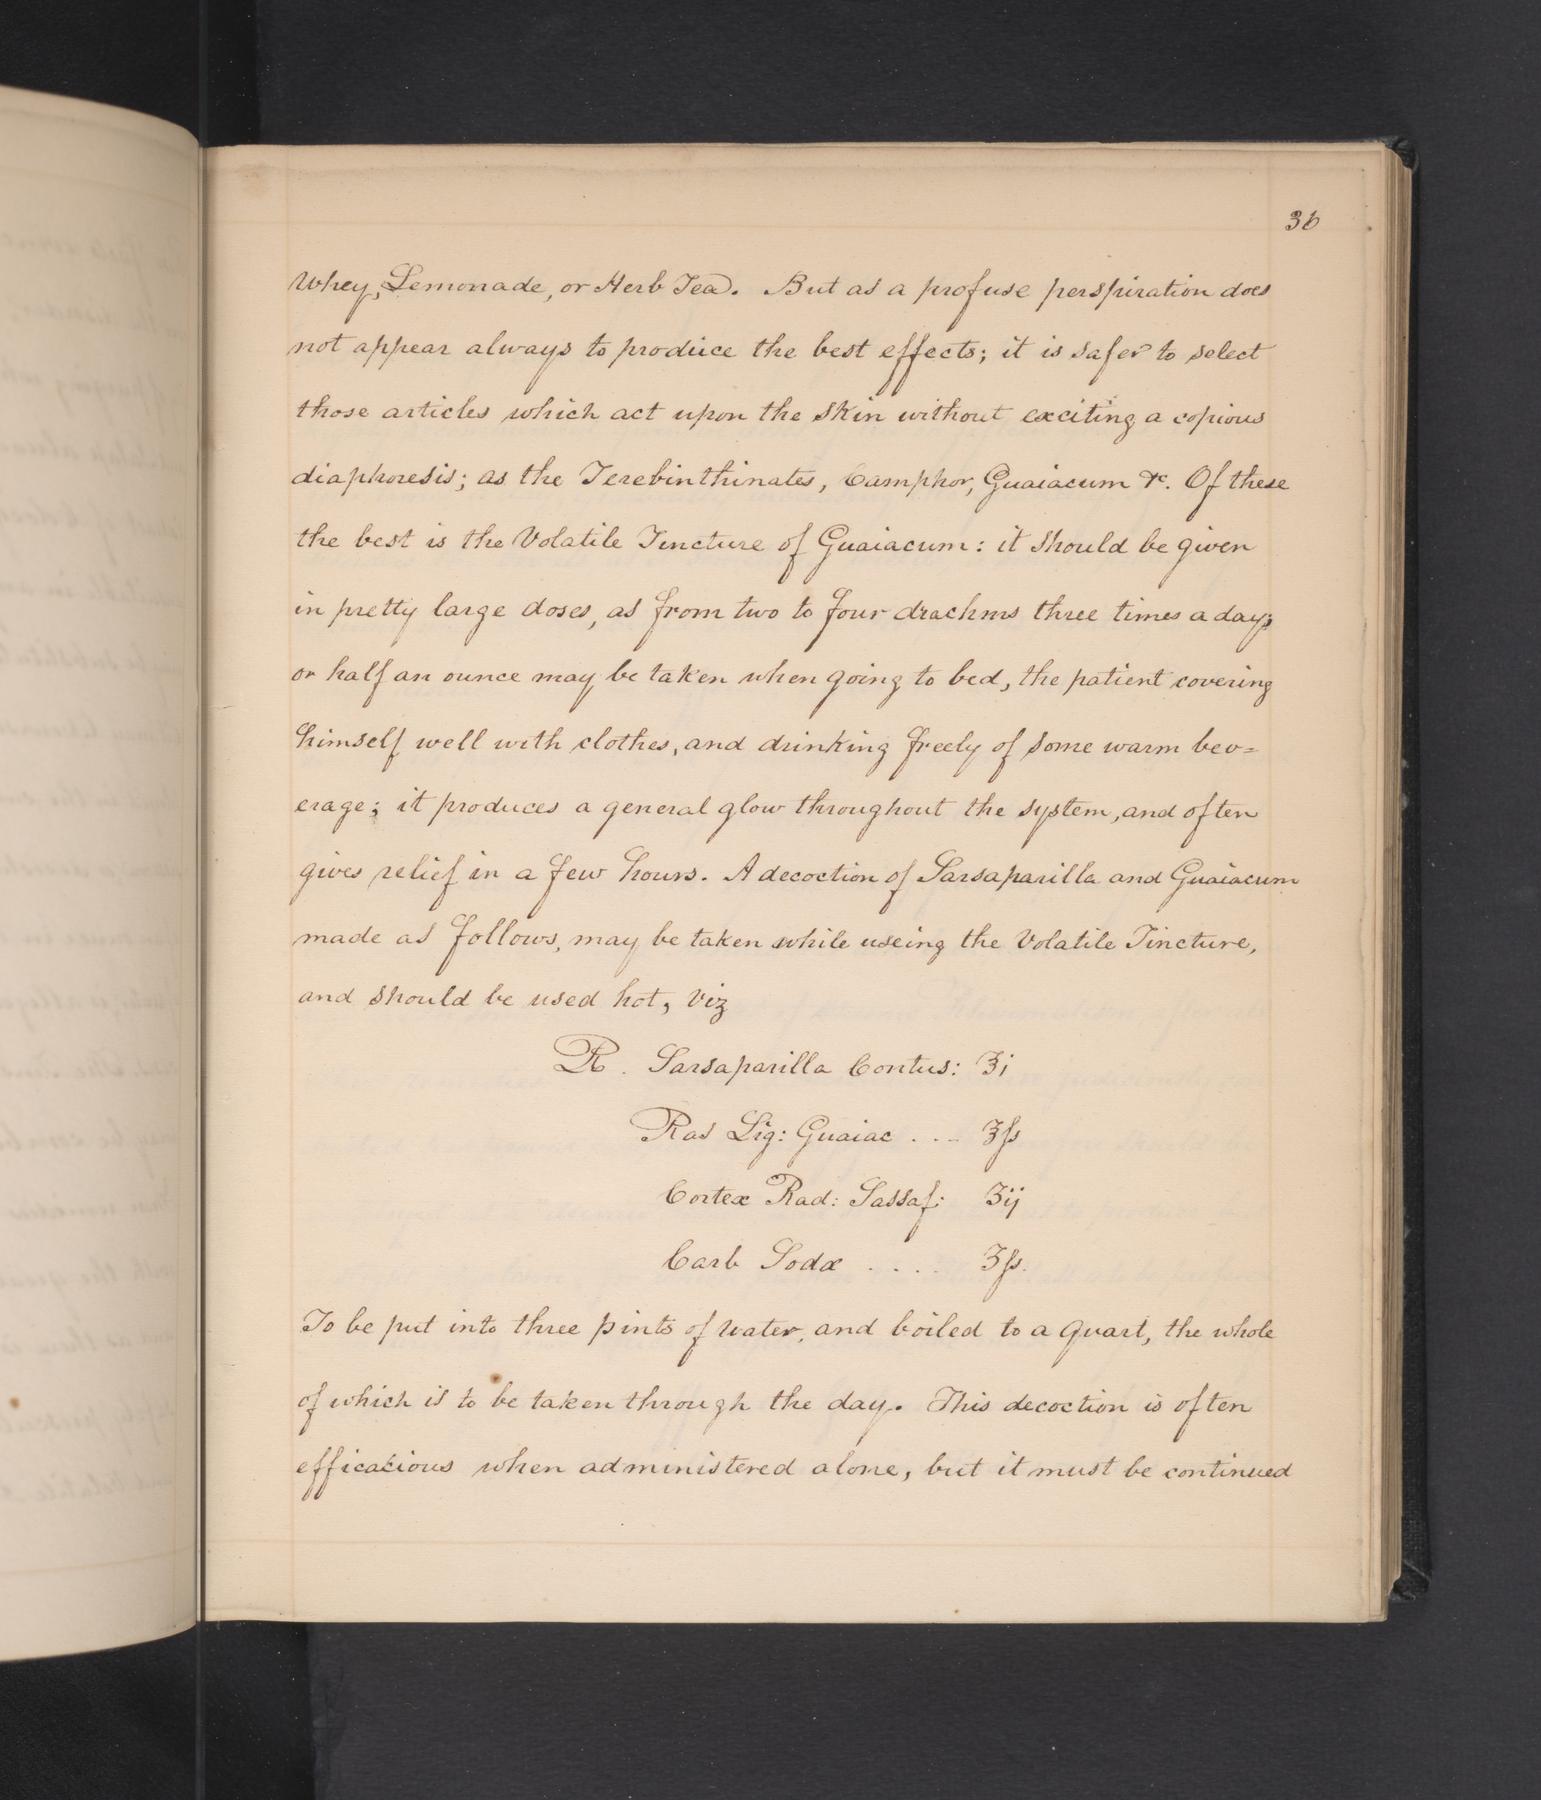 36
Whey, Lemonade, or Herb Tea. But as a profuse perspiration does
not appear always to produce the best effects; it is safer to select
those articles which act upon the skin without exciting a copious
diaphoresis; as the Terebinthinates, Camphor, Guaiacum &c. Of these
the best is the Volatile Tincture of Guaiacum: it should be given
in pretty large doses, as from two to four drachms three times a day;
or half an ounce may be taken when going to bed, the patient covering
himself well with clothes, and drinking freely of some warm bev=
erage; it produces a general glow throughout the system, and often
gives relief in a few hours. A decoction of Sarsaparilla and Guaiacum
made as follows, may be taken while useing the Volatile Tincture,
and should be used hot, Viz
R. Sarsaparilla Contus: ℥i
Ras Lig: Guaiac . . . ℥ſs
Cortex Rad: Sassaf: ʒij
Carb Sodæ . . . . ʒſs.
To be put into three pints of water, and boiled to a Quart, the whole
of which is to be taken through the day. This decoction is often
efficacious when administered alone, but it must be continued